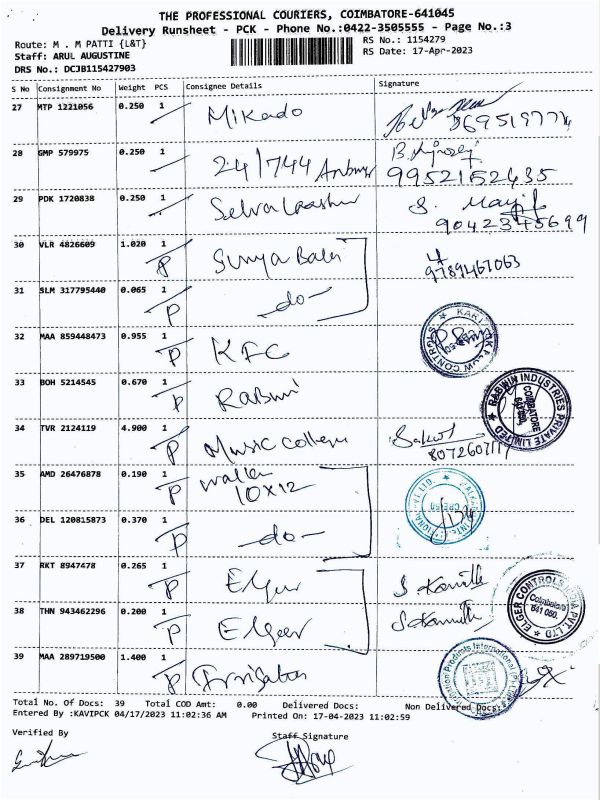 THE PROFESSIONAL COURIERS, COIMBATORE-641045
Delivery Runsheet - PCK - Phone No.:0422-3505555 - Page No.:3
Route: M . M PATTI {L&T}
RS No.: 1154279
Staff: ARUL AUGUSTINE
RS Date: 17-Apr-2023
DRS No.: DCJB115427903
S No Consignment No Weight PCS Consignee Details Signature
27 MTP 1221056 0.250 1 Mikado
28 GMP 579975 0.250 1 24/744
9952152435
29 PDK 1720838 0.250 1
9042345699
30 VLR 4826609 1.020 1 P Surya
9789467063
31 SLM 317795440 0.065 1 P -do-
32 MAA 859448473 0.955 1 P KFC
33 BOH 5214545 0.670 1 P
RABWIN INDUSTRIES PRIVATE LIMITED
COIMBATORE
34 TVR 2124119 4.900 1 P Music College
35 AMD 26476878 0.190 1 P
10X12
36 DEL 120815873 0.370 1 P -do-
37 RKT 8947478 0.265 1 P
38 THN 943462296 0.200 1 P Elgeer
ELGER CONTROLS INDIA PVT. LTD
Coimbatore
641 050.
39 MAA 289719500 1.400 1 P
Products International
Total No. Of Docs: 39 Total COD Amt: 0.00 Delivered Docs: Non Delivered Docs:
Entered By :KAVIPCK 04/17/2023 11:02:36 AM Printed On: 17-04-2023 11:02:59
Verified By
Staff Signature